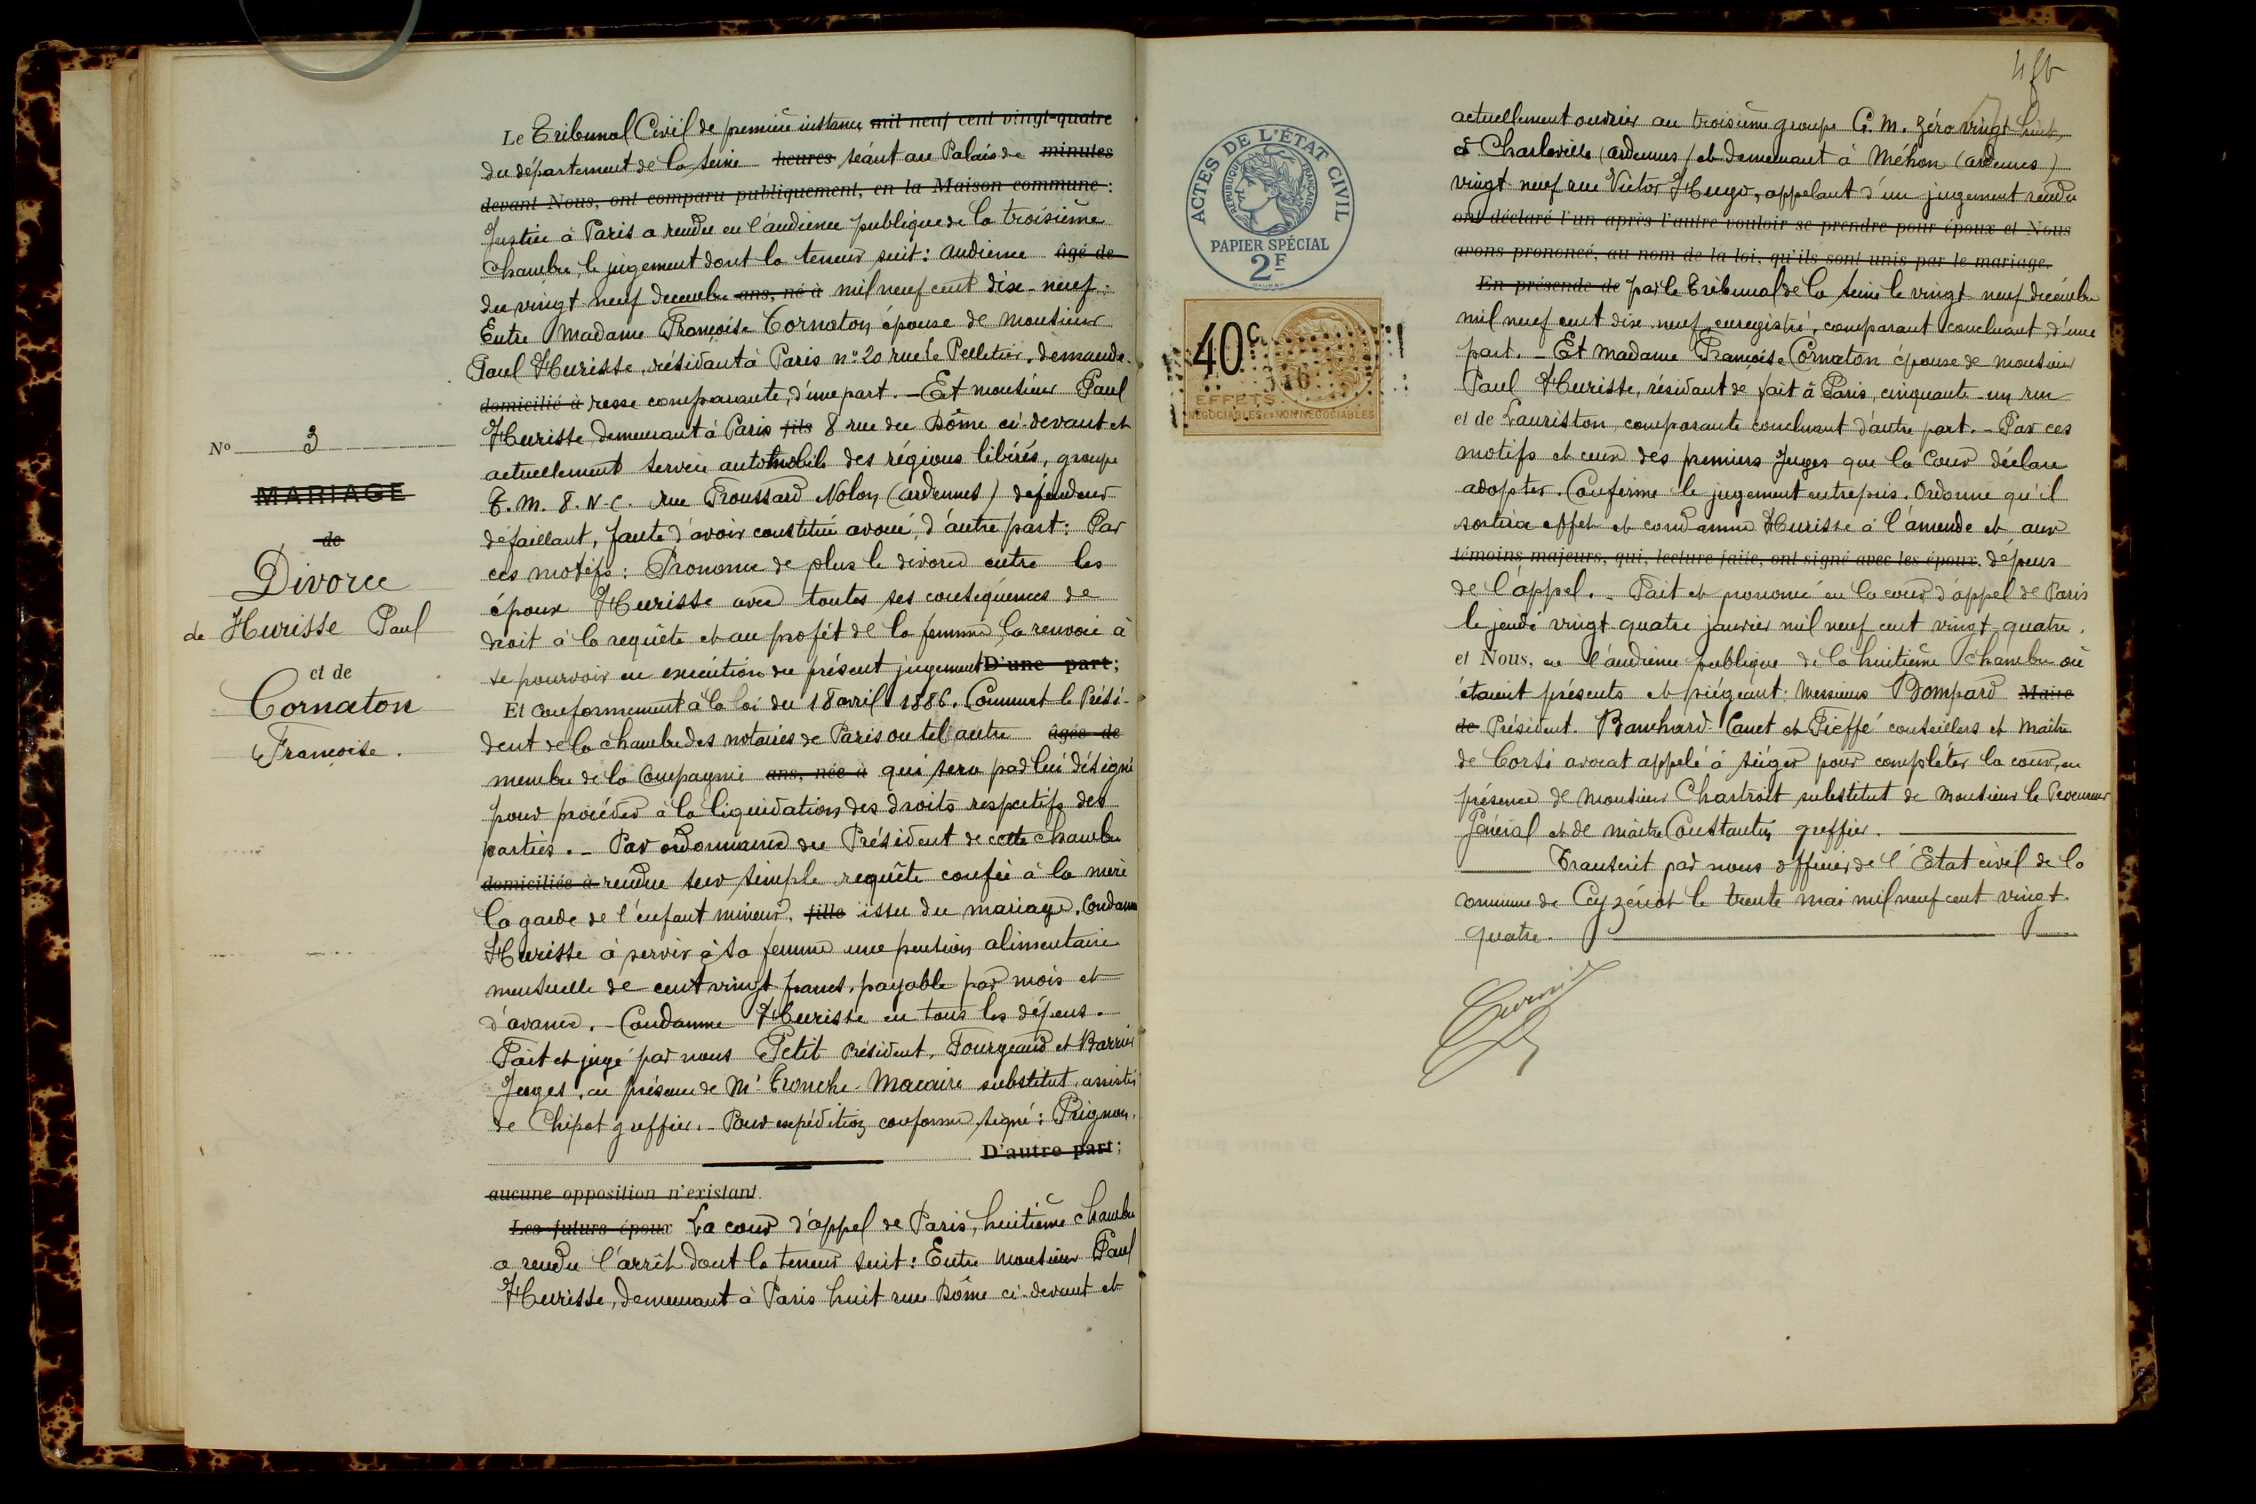 Nº 3
MARIAGE
de
Divorce
de Hurisse Paul
et de
Cornaton
Françoise.
Le Tribunal Civil de première instance mil neuf cent vingt-quatre
du département de la Seine heures, séant au Palais de minutes
devant Nous, ont comparu publiquement, en la Maison commune :
Justice à Paris a rendu en l'audience publique de la troisième
Chambre, le jugement dont la teneur suit : audience âgé de
du vingt neuf décembre ans, né à mil neuf cent dix-neuf.
Entre Madame Françoise Cornaton épouse de Monsieur
Paul Hurisse, résidant à Paris nº 20 rue le Pelletier, demande-
domicilié à resse comparante, d'une part. — Et monsieur Paul
Hurisse, demeurant à Paris fils 8 rue du Dôme ci-devant et
actuellement service automobile des régions libérés, groupe
T. M. 8. N. C. rue Froussard Nolon (Ardennes) défendeur
défaillant, faute d'avoir constitué avoué, d'autre part : Par
ces motifs : Prononce de plus le divorce entre les
époux Hurisse avec toutes ses conséquences de
droit à la requête et au profit de la femme la renvoie à
se pourvoir en exécution du présent jugement D'une part ;
Et conformément à la loi du 18 avril 1886. Commet le Prési-
dent de la chambre des notaires de Paris ou tel autre âgée de
membre de la Compagnie ans, née à qui sera par lui désigné
pour procéder à la liquidation des droits respectifs des
parties. — Par ordonnance du Président de cette chambre
domiciliée à rendue sur simple requête confie à la mère
la garde de l'enfant mineur, fille issu du mariage. Condamne
Hurisse à servir à sa femme une pension alimentaire
mensuelle de cent vingt francs, payable par mois et
d'avance. — Condamne Hurisse en tous les dépens.
Fait et jugé par nous Petit Président, Fourgeaud et Barrier
Juges, en présence de Mr Tronche-Macaire substitut, assistés
de Chipot greffier. — Pour expédition conforme, signé : Prignon.
D'autre part ;
aucune opposition n'existant.
Les futurs époux La cour d'appel de Paris, huitième chambre
a rendu l'arrêt dont la teneur suit : Entre monsieur Paul
Hurisse, demeurant à Paris huit rue Dôme ci-devant et
ACTES DE L'ÉTAT CIVIL
RÉPUBLIQUE FRANÇAISE
PAPIER SPÉCIAL
2F
40c
EFFETS
NÉGOCIABLES ET NON NÉGOCIABLES
actuellement ouvrier au troisième groupe C. M. zéro vingt huit,
à Charleville (Ardennes) et demeurant à Méhon (Ardennes)
vingt neuf rue Victor Hugo, appelant d'un jugement rendu
ont déclaré l'un après l'autre vouloir se prendre pour époux et Nous
avons prononcé, au nom de la loi, qu'ils sont unis par le mariage.
En présende de par le Tribunal de la Seine le vingt neuf décembre
mil neuf cent dix neuf, enregistré, comparant concluant, d'une
part. — Et Madame Françoise Cornaton épouse de monsieur
Paul Hurisse, résidant de fait à Paris, cinquante-un rue
et de Lauriston, comparante concluant d'autre part. — Par ces
motifs et ceux des premiers Juges que la Cour déclare
adopter. Confirme le jugement entrepris. Ordonne qu'il
sortira effet et condamne Hurisse à l'amende et aux
témoins majeurs, qui, lecture faite, ont signé avec les époux. dépens
de l'appel. — Fait et prononcé en la cour d'appel de Paris
le jeudi vingt quatre janvier mil neuf cent vingt quatre.
et Nous, en l'audience publique de la huitième chambre où
étaient présents et siégeant : Messieurs Bompard Maire
de Président. Banchard-Canet et Fieffé conseillers et Maître
de Corsi avocat appelé à siéger pour compléter la cour, en
présence de Monsieur Chartroit substitut de Monsieur le Procureur
Général et de Maître Constantin greffier.
Transcrit par nous officier de l'Etat civil de la
commune de Ceyzériat le trente mai mil neuf cent vingt-
quatre.